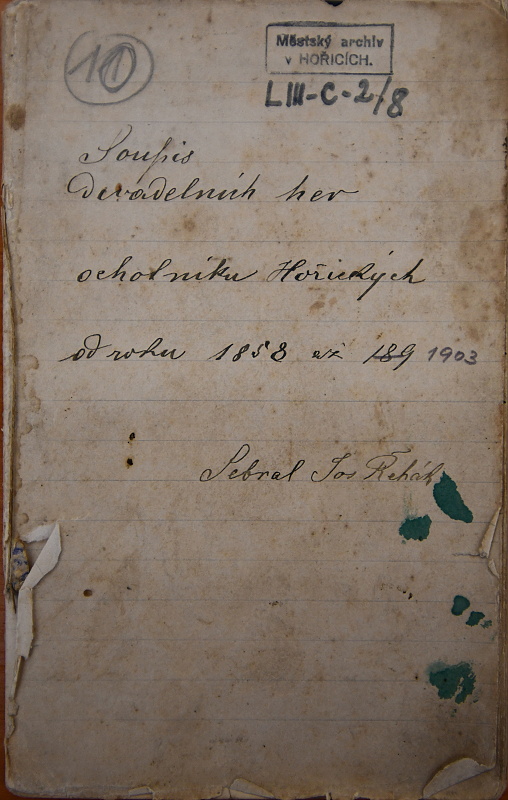 10
Městský archiv
v HOŘICÍCH.
LIII-C-2/8
Soupis
divadelních her
ochotníku Hořických
od roku 1858 až 189 1903
Sebral Jos Řehák